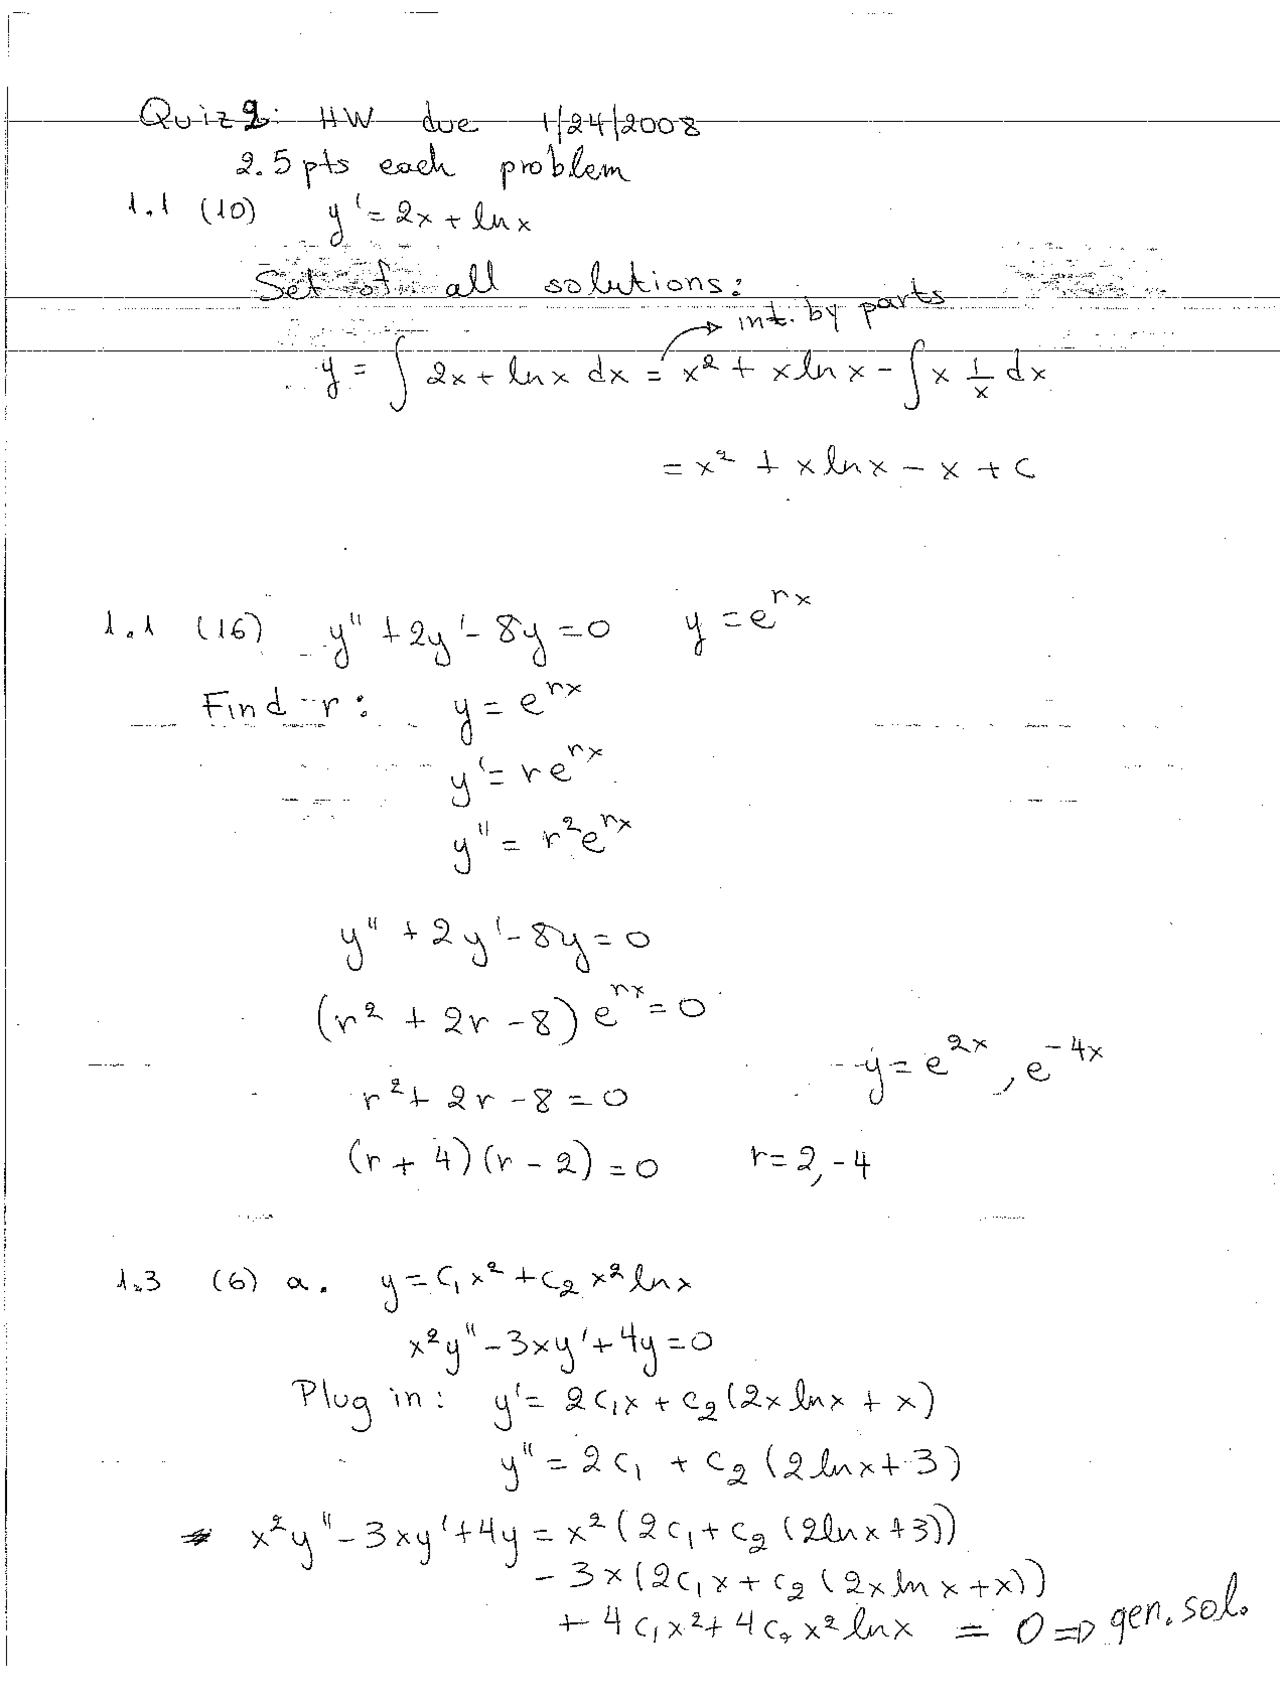 Quiz 2: HW due 1/24/2008
2.5 pts each problem
1.1 (10) y' = 2x + ln x
Set of all solutions:
int. by parts
y = ∫ 2x + ln x dx = x² + x ln x - ∫ x 1/x dx
= x² + x ln x - x + c
1.1 (16) y'' + 2y' - 8y = 0 y = e^{rx}
Find r: y = e^{rx}
y' = re^{rx}
y'' = r²e^{rx}
y'' + 2y' - 8y = 0
(r² + 2r - 8) e^{rx} = 0
y = e^{2x}, e^{-4x}
r² + 2r - 8 = 0
(r + 4)(r - 2) = 0 r = 2, -4
1.3 (6) a. y = c₁x² + c₂x² ln x
x²y'' - 3xy' + 4y = 0
Plug in: y' = 2c₁x + c₂(2x ln x + x)
y'' = 2c₁ + c₂(2 ln x + 3)
x²y'' - 3xy' + 4y = x²(2c₁ + c₂(2 ln x + 3))
- 3x(2c₁x + c₂(2x ln x + x))
+ 4c₁x² + 4c₂x² ln x = 0 ⇒ gen. sol.